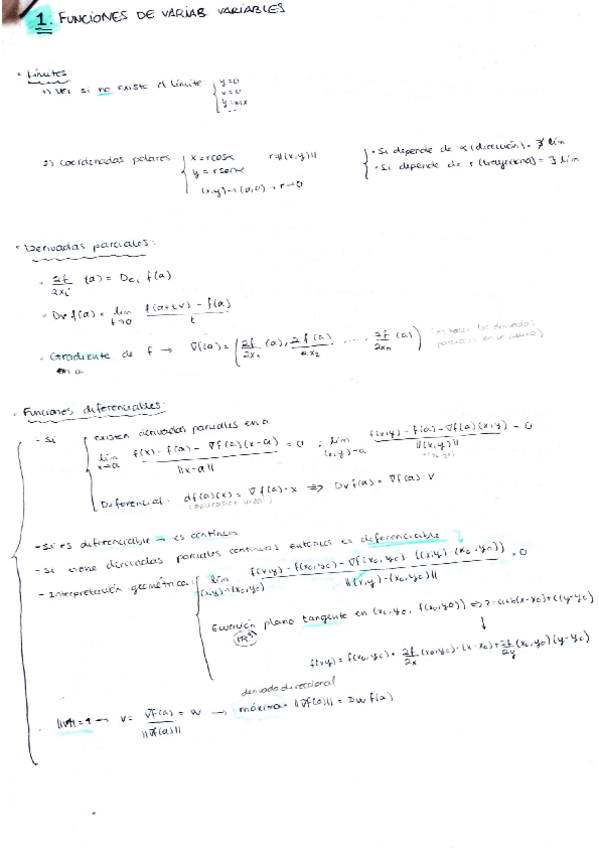 1. FUNCIONES DE VARIAB VARIABLES
• Límites:
1) Ver si no existe el límite: { y=0
x=0
y=mx
...
2) Coordenadas polares: { x=rcosα r=||(x,y)||
y=rsenα
(x,y)→(0,0) → r→0
{ • Si depende de α (dirección) = ∄ lím
• Si depende de r (trayectoria) = ∃ lím
• Derivadas parciales:
- ∂f/∂xi (a) = Dei f(a)
- Dvf(a) = lim t→0 f(a+tv) - f(a) / t
- Gradiente de f → ∇f(a) = (∂f/∂x1 (a), ∂f/∂x2 (a) ..... ∂f/∂xn (a))
en a
• Funciones diferenciables:
- Si { existen derivadas parciales en a
lim x→a f(x) - f(a) - ∇f(a)(x-a) / ||x-a|| = 0 ; lim (x,y)→a f(x,y) - f(a) - ∇f(a)(x,y) / ||(x,y)|| = 0
Diferencial: df(a)(x) = ∇f(a)·x ⇒ Dvf(a) = ∇f(a)·v
(aplicación lineal)
- Si es diferenciable → es continua
- Si tiene derivadas parciales continuas entonces es diferenciable
- Interpretación geométrica: { lim (x,y)→(x0,y0) f(x,y) - f(x0,y0) - ∇f(x0,y0)·((x,y)-(x0,y0)) / ||(x,y)-(x0,y0)|| = 0
Ecuación plano tangente en (x0,y0, f(x0,y0)) ⇒ z=a+b(x-x0)+c(y-y0)
(IR³) ↓
f(x,y) = f(x0,y0) + ∂f/∂x (x0,y0)·(x-x0) + ∂f/∂y (x0,y0)(y-y0)
derivada direccional
||v||=1 → v = ∇f(a) / ||∇f(a)|| = w → máxima = ||∇f(a)|| = Dwf(a)